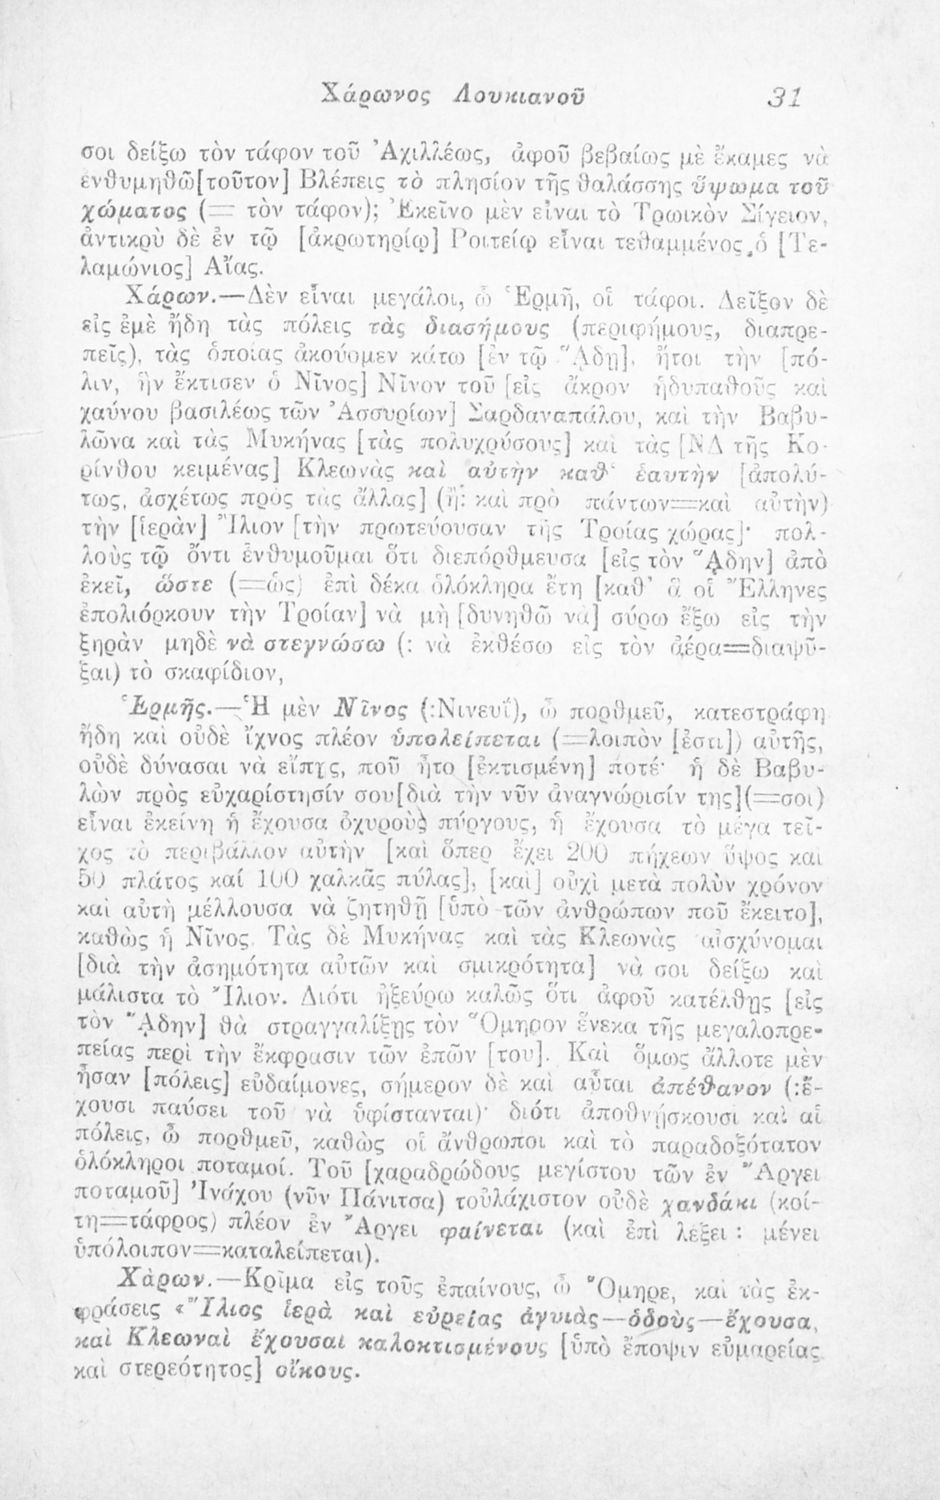 Χάρωνος Λουκιανοῦ 31
σοι δείξω τὸν τάφον τοῦ Ἀχιλλέως, ἀφοῦ βεβαίως μὲ ἔκαμες νὰ
ἐνθυμηθῶ[τοῦτον] Βλέπεις τὸ πλησίον τῆς θαλάσσης ὕψωμα τοῦ
χώματος (= τὸν τάφον); Ἐκεῖνο μὲν εἶναι τὸ Τρωικὸν Σίγειον,
ἀντικρὺ δὲ ἐν τῷ [ἀκρωτηρίῳ] Ροιτείῳ εἶναι τεθαμμένος ὁ [Τε-
λαμώνιος] Αἴας.
Χάρων.—Δὲν εἶναι μεγάλοι, ὦ Ἑρμῆ, οἱ τάφοι. Δεῖξον δὲ
εἰς ἐμὲ ἤδη τὰς πόλεις τὰς διασήμους (περιφήμους, διαπρε-
πεῖς), τὰς ὁποίας ἀκούομεν κάτω [ἐν τῷ Ἅδῃ], ἤτοι τὴν [πό-
λιν, ἣν ἔκτισεν ὁ Νῖνος] Νῖνον τοῦ [εἰς ἄκρον ἡδυπαθοῦς καὶ
χαύνου βασιλέως τῶν Ἀσσυρίων] Σαρδαναπάλου, καὶ τὴν Βαβυ-
λῶνα καὶ τὰς Μυκήνας [τὰς πολυχρύσους] καὶ τὰς [ΝΔ τῆς Κο-
ρίνθου κειμένας] Κλεωνὰς καὶ αὐτὴν καθ᾽ ἑαυτὴν [ἀπολύ-
τως, ἀσχέτως πρὸς τὰς ἄλλας] (ἢ: καὶ πρὸ πάντων=καὶ αὐτὴν)
τὴν [ἱερὰν] Ἴλιον [τὴν πρωτεύουσαν τῆς Τροίας χώρας]· πολ-
λοὺς τῷ ὄντι ἐνθυμοῦμαι ὅτι διεπόρθμευσα [εἰς τὸν Ἅδην] ἀπὸ
ἐκεῖ, ὥστε (=ὡς) ἐπὶ δέκα ὁλόκληρα ἔτη [καθ᾽ ἃ οἱ Ἕλληνες
ἐπολιόρκουν τὴν Τροίαν] νὰ μὴ [δυνηθῶ νὰ] σύρω ἔξω εἰς τὴν
ξηρὰν μηδὲ νὰ στεγνώσω (: νὰ ἐκθέσω εἰς τὸν ἀέρα=διαψῦ-
ξαι) τὸ σκαφίδιον,
Ἑρμῆς.—Ἡ μὲν Νῖνος (:Νινευΐ), ὦ πορθμεῦ, κατεστράφη
ἤδη καὶ οὐδὲ ἴχνος πλέον ὑπολείπεται (=λοιπὸν [ἐστι]) αὐτῆς,
οὐδὲ δύνασαι νὰ εἴπῃς, ποῦ ἦτο [ἐκτισμένη] ποτέ· ἡ δὲ Βαβυ-
λὼν πρὸς εὐχαρίστησίν σου[διὰ τὴν νῦν ἀναγνώρισίν της](=σοι)
εἶναι ἐκείνη ἡ ἔχουσα ὀχυροὺς πύργους, ἡ ἔχουσα τὸ μέγα τεῖ-
χος τὸ περιβάλλον αὐτὴν [καὶ ὅπερ ἔχει 200 πήχεων ὕψος καὶ
50 πλάτος καί 100 χαλκᾶς πύλας], [καὶ] οὐχὶ μετὰ πολὺν χρόνον
καὶ αὐτὴ μέλλουσα νὰ ζητηθῇ [ὑπὸ τῶν ἀνθρώπων ποῦ ἔκειτο],
καθὼς ἡ Νῖνος. Τὰς δὲ Μυκήνας καὶ τὰς Κλεωνὰς αἰσχύνομαι
[διὰ τὴν ἀσημότητα αὐτῶν καὶ σμικρότητα] νὰ σοι δείξω καὶ
μάλιστα τὸ Ἴλιον. Διότι ἠξεύρω καλῶς ὅτι ἀφοῦ κατέλθῃς [εἰς
τὸν Ἅδην] θὰ στραγγαλίξῃς τὸν Ὅμηρον ἕνεκα τῆς μεγαλοπρε-
πείας περὶ τὴν ἔκφρασιν τῶν ἐπῶν [του]. Καὶ ὅμως ἄλλοτε μὲν
ἦσαν [πόλεις] εὐδαίμονες, σήμερον δὲ καὶ αὗται ἀπέθανον (:ἔ-
χουσι παύσει τοῦ νὰ ὑφίστανται)· διότι ἀποθνήσκουσι καὶ αἱ
πόλεις, ὦ πορθμεῦ, καθὼς οἱ ἄνθρωποι καὶ τὸ παραδοξότατον
ὁλόκληροι ποταμοί. Τοῦ [χαραδρώδους μεγίστου τῶν ἐν Ἄργει
ποταμοῦ] Ἰνάχου (νῦν Πάνιτσα) τοὐλάχιστον οὐδὲ χανδάκι (κοί-
τη=τάφρος) πλέον ἐν Ἄργει φαίνεται (καὶ ἐπὶ λέξει : μένει
ὑπόλοιπον=καταλείπεται).
Χάρων.—Κρῖμα εἰς τοὺς ἐπαίνους, ὦ Ὅμηρε, καὶ τὰς ἐκ-
φράσεις «Ἴλιος ἱερὰ καὶ εὐρείας ἀγυιὰς—ὁδοὺς—ἔχουσα,
καὶ Κλεωναὶ ἔχουσαι καλοκτισμένους [ὑπὸ ἔποψιν εὐμαρείας
καὶ στερεότητος] οἴκους.